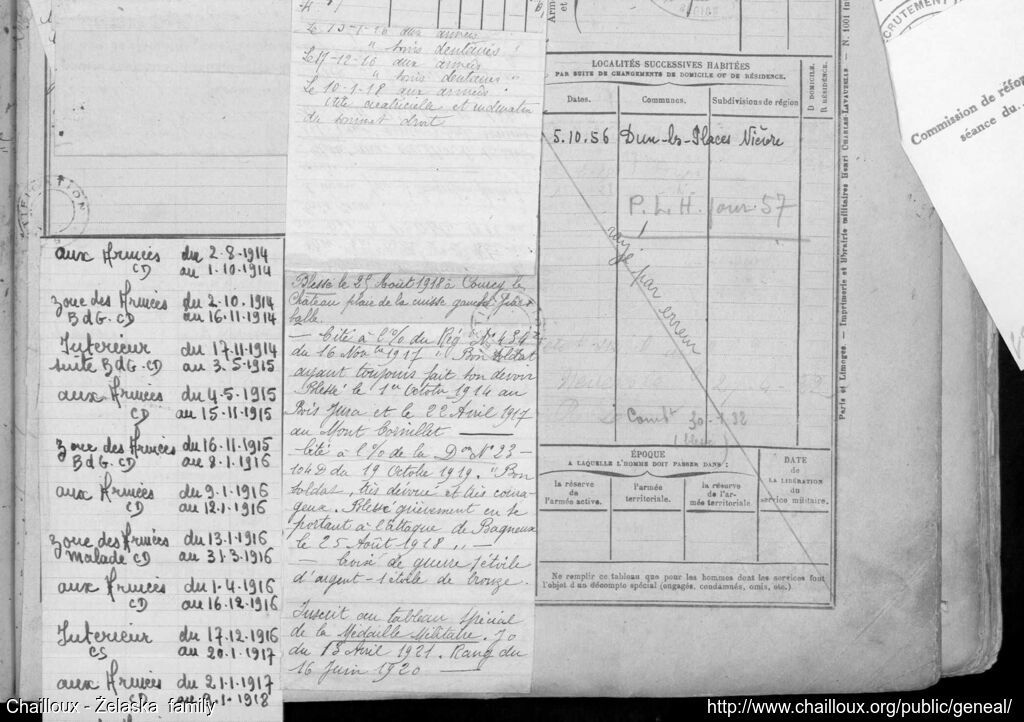 Le 13-1-16 aux armées
" soins dentaires "
Le 17-12-16 aux armées
" soins dentaires "
Le 10-1-18 aux armées
du sommet droit
aux Armées du 2.8.1914
CD au 1.10.1914
zone des Armées du 2.10.1914
BdG.CD au 16.11.1914
Intérieur du 17.11.1914
suite BdG.CD au 3.5.1915
aux Armées du 4.5.1915
CD au 15.11.1915
zone des Armées du 16.11.1915
BdG.CD au 8.1.1916
aux Armées du 9.1.1916
CD au 12.1.1916
zone des Armées du 13.1.1916
Malade CD au 31.3.1916
aux Armées du 1.4.1916
CD au 16.12.1916
Intérieur du 17.12.1916
CS au 20.1.1917
aux Armées du 21.1.1917
CD au 9.1.1918
Blessé le 25 Août 1918 à Coucy le
Château plaie de la cuisse gauche par
balle.
— Cité à l'O/ du Rég. N° 434
du 16 Nov bre 1917 " Bon soldat
ayant toujours fait son devoir
Blessé le 1er Octobre 1914 au
Bois Jura et le 22 Avril 1917
au Mont Cornillet —
— Cité à l'O/ de la Don N° 23 –
104 D du 19 Octobre 1919. " Bon
soldat, très dévoué et très coura-
geux. Blessé grièvement en se
portant à l'attaque de Bagneux
le 25 Août 1918 „ —
— Croix de guerre 1 étoile
d'argent – 1 étoile de bronze.
Inscrit au tableau spécial
de la Médaille Militaire. Jo
du 13 Avril 1921. Rang du
16 Juin 1920 —
LOCALITÉS SUCCESSIVES HABITÉES
PAR SUITE DE CHANGEMENTS DE DOMICILE OU DE RÉSIDENCE.
Dates. Communes. Subdivisions de région
D DOMICILE.
R RÉSIDENCE.
5.10.56 Dun-les-Places Nièvre
P.L.H. jour 57
rayé par erreur
30-1-32
ÉPOQUE
A LAQUELLE L'HOMME DOIT PASSER DANS :
la réserve
de
l'armée active.
l'armée
territoriale.
la réserve
de l'ar-
mée territoriale
DATE
de
LA LIBÉRATION
du
service militaire.
Ne remplir ce tableau que pour les hommes dont les services font
l'objet d'un décompte spécial (engagés, condamnés, omis, etc.)
Paris et Limoges. — Imprimerie et librairie militaires Henri CHARLES-LAVAUZELLE — N. 1001
RECRUTEMENT
Commission de réfo
séance du..
Chailloux - Żelaska family
http://www.chailloux.org/public/geneal/